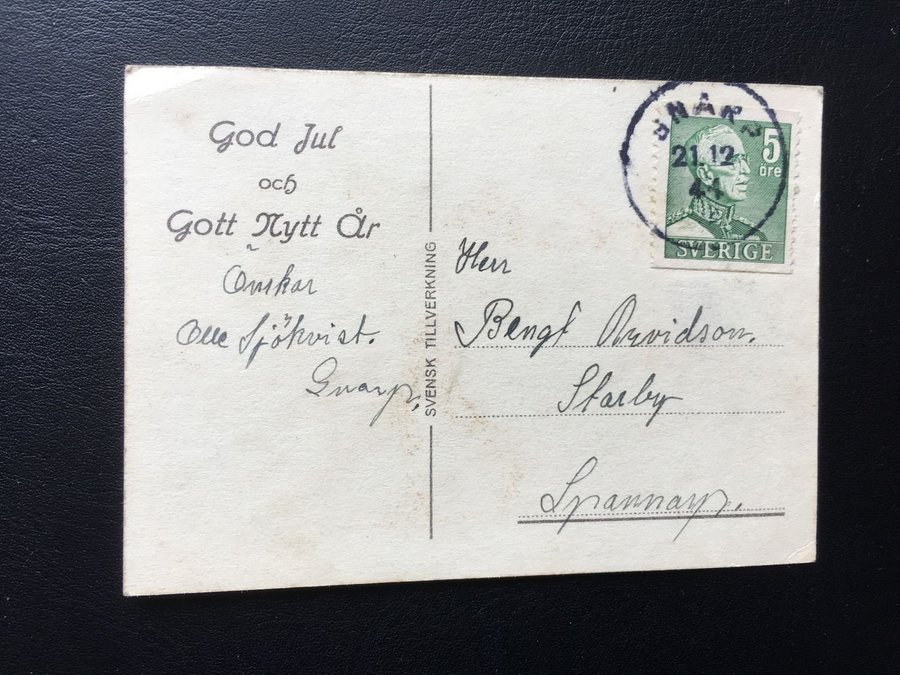 God Jul
och
Gott Nytt År
Önskar
Olle Sjökvist.
Gnarp.
SVENSK TILLVERKNING
21.12
44
5
öre
SVERIGE
Herr
Bengt Arvidson.
Starby
Spannarp.